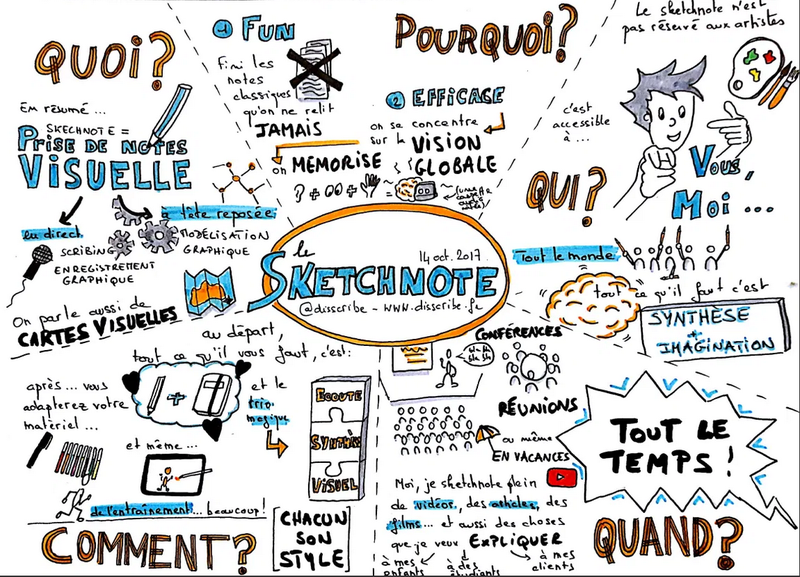 QUOI?
En résumé ...
SKECHNOTE =
PRISE DE NOTES
VISUELLE
en direct
SCRIBING
ENREGISTREMENT
GRAPHIQUE
à tête reposée
MODÉLISATION
GRAPHIQUE
On parle aussi de
CARTES VISUELLES
POURQUOI?
1 FUN
Fini les
notes
classiques
qu'on ne relit
JAMAIS
2 EFFICACE
on se concentre
sur la VISION
GLOBALE
on MEMORISE
? + + =
le
14 oct. 2017
SKETCHNOTE
@disscribe - www.disscribe.fr
Le sketchnote n'est
pas réservé aux artistes
c'est
accessible
à ...
QUI?
Vous,
Moi ...
Tout le monde
tout ce qu'il faut c'est
SYNTHÈSE
+
IMAGINATION
au départ,
tout ce qu'il vous faut, c'est:
+
après ... vous
adapterez votre
matériel ...
et même ...
et le
trio
magique
ECOUTE
SYNTHÈSE
VISUEL
de l'entraînement ... beaucoup!
COMMENT?
CHACUN
SON
STYLE
CONFÉRENCES
RÉUNIONS
ou même
EN VACANCES
Moi, je sketchnote plein
de vidéos, des articles, des
films ... et aussi des choses
que je veux EXPLIQUER
à mes
enfants
à des
étudiants
à mes
clients
TOUT LE
TEMPS!
QUAND?